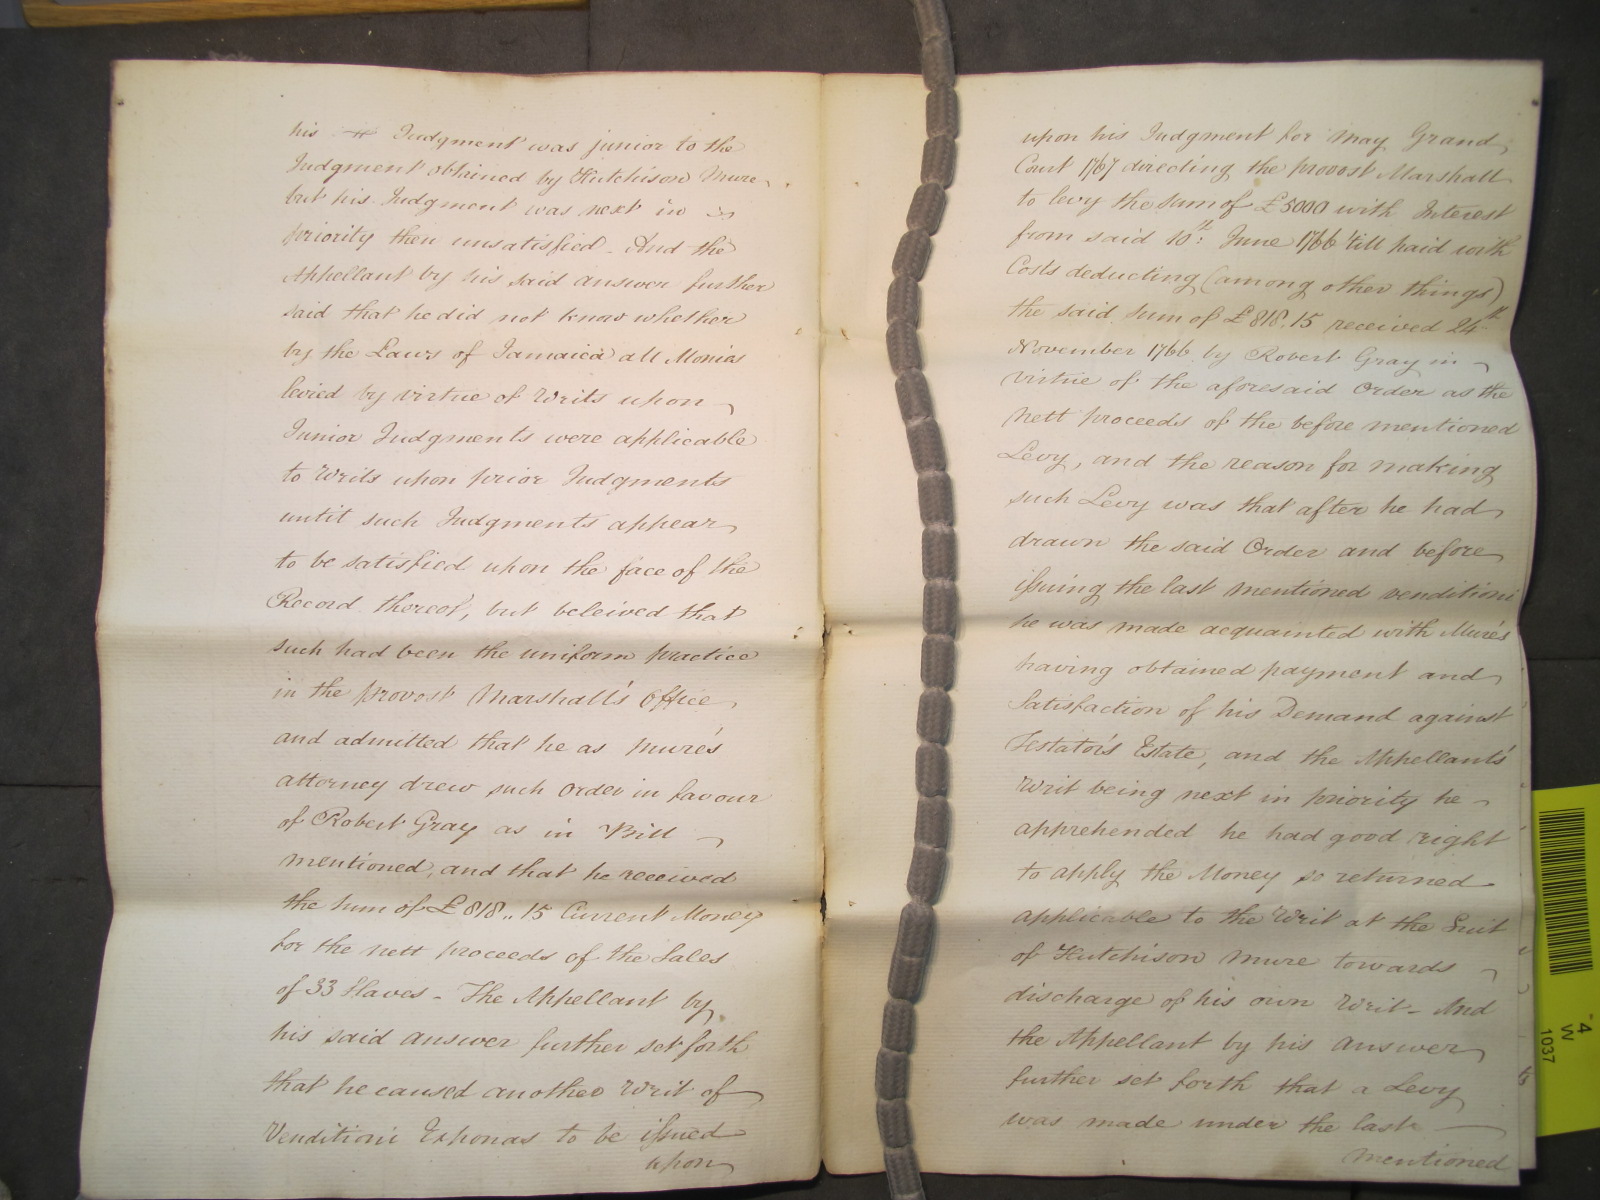 his Judgment was junior to the
Judgment obtained by Hutchison Mure
but his Judgment was next in
priority then unsatisfied - And the
Appellant by his said answer further
said that he did not know whether
by the Laws of Jamaica all Monies
levied by virtue of Writs upon
Junior Judgments were applicable
to Writs upon prior Judgments
until such Judgments appear
to be satisfied upon the face of the
Record thereof, but beleived that
such had been the uniform practice
in the provost Marshall's Office
and admitted that he as Mure's
attorney drew such Order in favour
of Robert Gray as in Bill
mentioned, and that he received
the Sum of £818.. 15 Current Money
for the nett proceeds of the Sales
of 33 Slaves - The Appellant by
his said answer further set forth
that he caused another Writ of
Venditioni Exponas to be issued
upon
upon his Judgment for May Grand
Court 1767 directing the provost Marshall
to levy the sum of £5000 with Interest
from said 10th: June 1766 'till paid with
Costs deducting (among other things)
the said Sum of £818.15 received 24th
November 1766 by Robert Gray in
virtue of the aforesaid Order as the
nett proceeds of the before mentioned
Levy, and the reason for making
such Levy was that after he had
drawn the said Order and before
issuing the last mentioned venditioni
he was made acquainted with Mure's
having obtained payment and
Satisfaction of his Demand against
Testator's Estate, and the Appellant's
Writ being next in priority he
apprehended he had good right
to apply the Money so returned
applicable to the Writ at the Suit
of Hutchison Mure towards
discharge of his own Writ - And
the Appellant by his answer
further set forth that a Levy
was made under the last
mentioned
4
W
1037